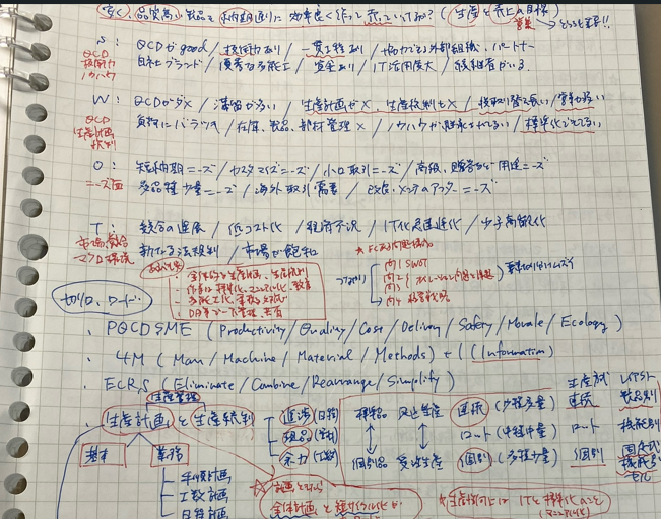 安く、品質高い製品を納期通りに効率良く作って売っていけるか？（生産と売上の目標）
営業 → どちらも重要!!
S： QCDがgood / 技術力あり / 一貫工程あり / 協力できる外部組織、パートナー
QCD
技術力
ノウハウ
自社ブランド / 優秀な多能工 / 資金あり / IT活用度大 / 後継者がいる
W： QCDがダメ / 滞留が多い / 生産計画が×、生産統制も× / 段取り替え長い / 営業が弱い
QCD
生産計画
統制
負荷にバラツキ / 在庫、製品、部材管理× / ノウハウが継承されてない / 標準化できてない
O： 短納期ニーズ / カスタマイズニーズ / 小口取引ニーズ / 高級、贈答など用途ニーズ
ニーズ面
多品種少量ニーズ / 海外取引需要 / 改良、メンテのアフターニーズ
T： 競合の進展 / 低コスト化 / 経済不況 / IT化高度進化 / 少子高齢化
市場、競合
マクロ環境
新たなる法規制 / 市場が飽和
・全体的な生産計画、生産統制
・作業は標準化、マニュアル化、教育
・DB等で一元管理、共有
問1 SWOT
問2
問3
問4 経営戦略
切り口とワード
・PQCDSME (Productivity / Quality / Cost / Delivery / Safety / Morale / Ecology)
・4M (Man / Machine / Material / Methods) + (Information)
・ECRS (Eliminate / Combine / Rearrange / Simplify)
生産管理
・生産計画 と 生産統制
進捗(日程)
現品(材料)
余力(工数)
標準品 見込生産 連続(少種多量)
ロット(中種中量)
個別品 受注生産 個別(多種少量)
生産方式 レイアウト
連続 製品別
ロット 機能別
個別 固定式
機能別
セル
基本 業務
手順計画
工数計画
日程計画
☆計画というのは
全体計画と短サイクル化が
☆生産性向上にはITと標準化のこと
(マニュアル化)